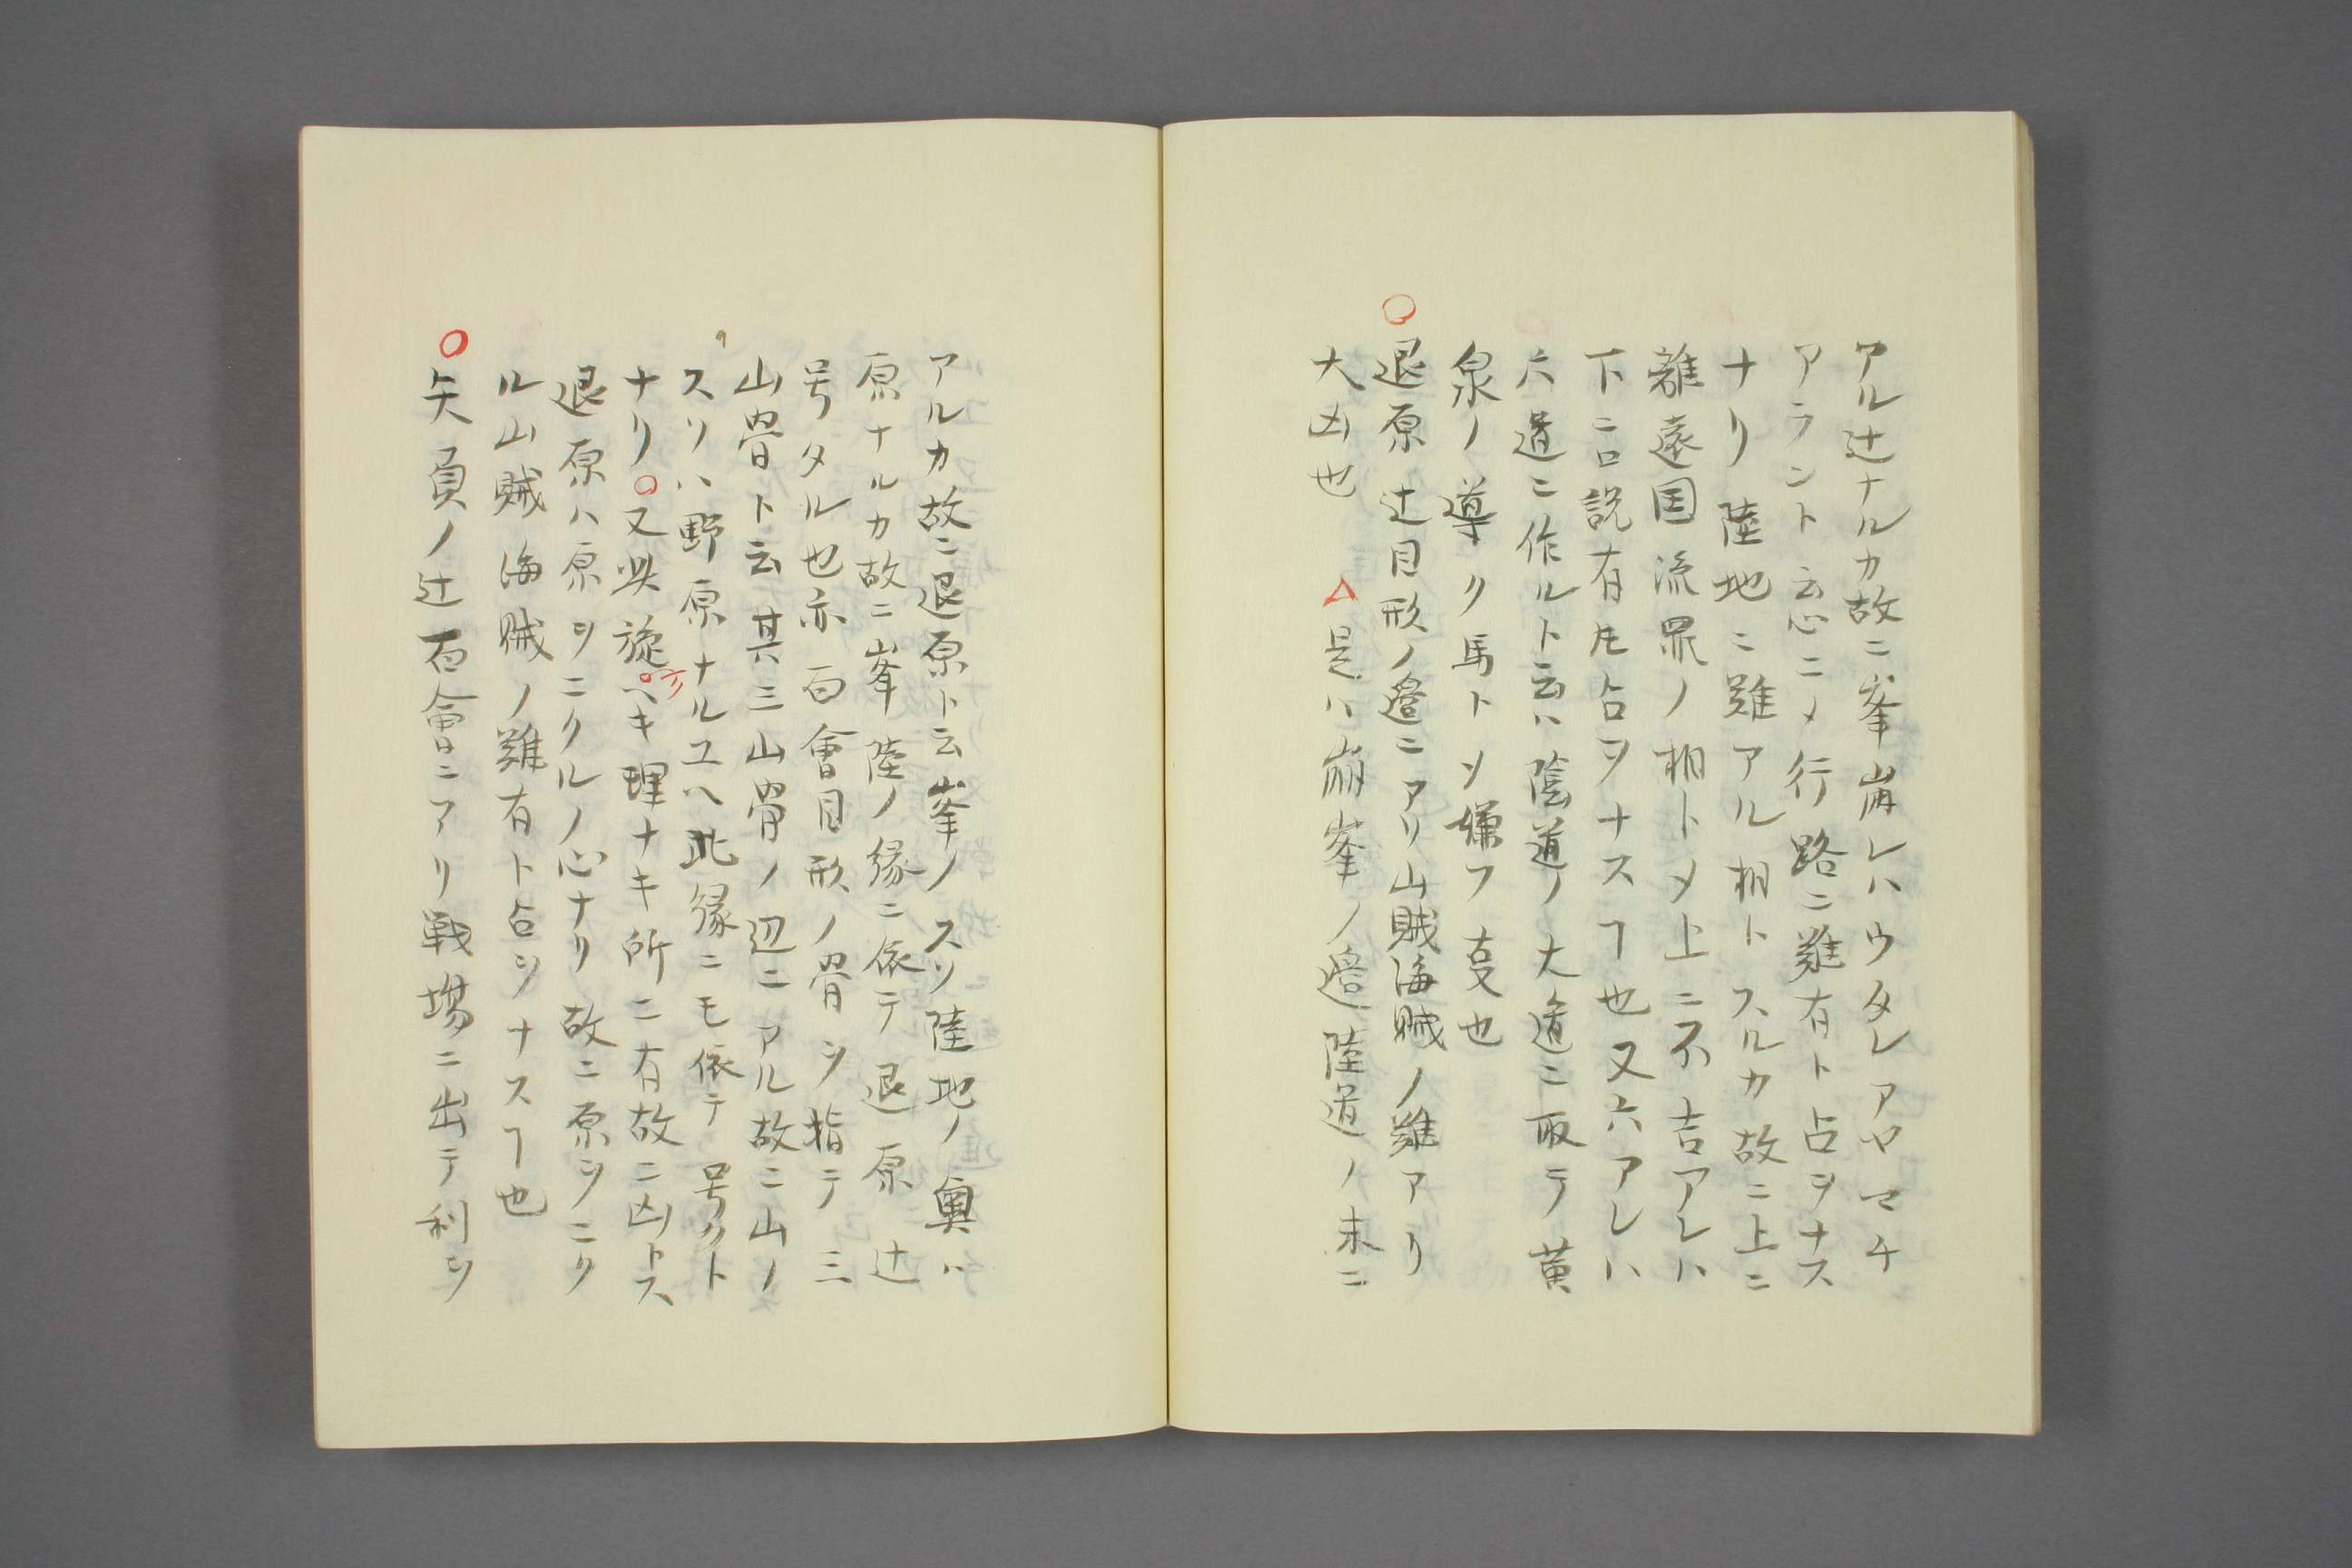 アル辻ナルカ故ニ峯崩レハウタレアヤマチ
アラント云心ニメ行路ニ難有ト占ヲナス
ナリ陸地ニ難アル相トスルカ故ニ上ニ
離遠国流罪ノ相トメ上ニ不吉アレハ
下ニ口説有𪜈占ヲナスヿ也又六アレハ
六道ニ作ルト云ハ陰道ノ大道ニ取テ黄
泉ノ導ク馬トソ嫌フ㕝也
○退原辻目形ノ邉ニアリ山賊海賊ノ難アリ
大凶也 △是ハ崩峯ノ邉陸道ノ末ニ
アルカ故ニ退原ト云峯ノスソ陸地ノ奥ハ
原ナルカ故ニ峯陸ノ縁ニ依テ退原辻
号タル也亦百會目形ノ骨ヲ指テ三
山骨ト云其三山骨ノ辺ニアル故ニ山ノ
スソハ野原ナルユヘ此縁ニモ依テ号クト
ナリ○又此旋ヘキ理ナキ所ニ有故ニ凶トス
退原ハ原ヲニクルノ心ナリ故ニ原ヲニク
ル山賊海賊ノ難有ト占ヲナスヿ也
○矢負ノ辻百會ニアリ戦場ニ出テ利ヲ